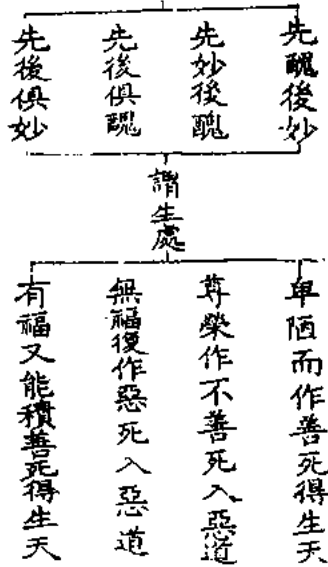 先醜後妙
先妙後醜
先後俱醜
先後俱妙
謂生處
卑陋而作善死得生天
尊榮作不善死入惡道
無福復作惡死入惡道
有福又能積善死得生天